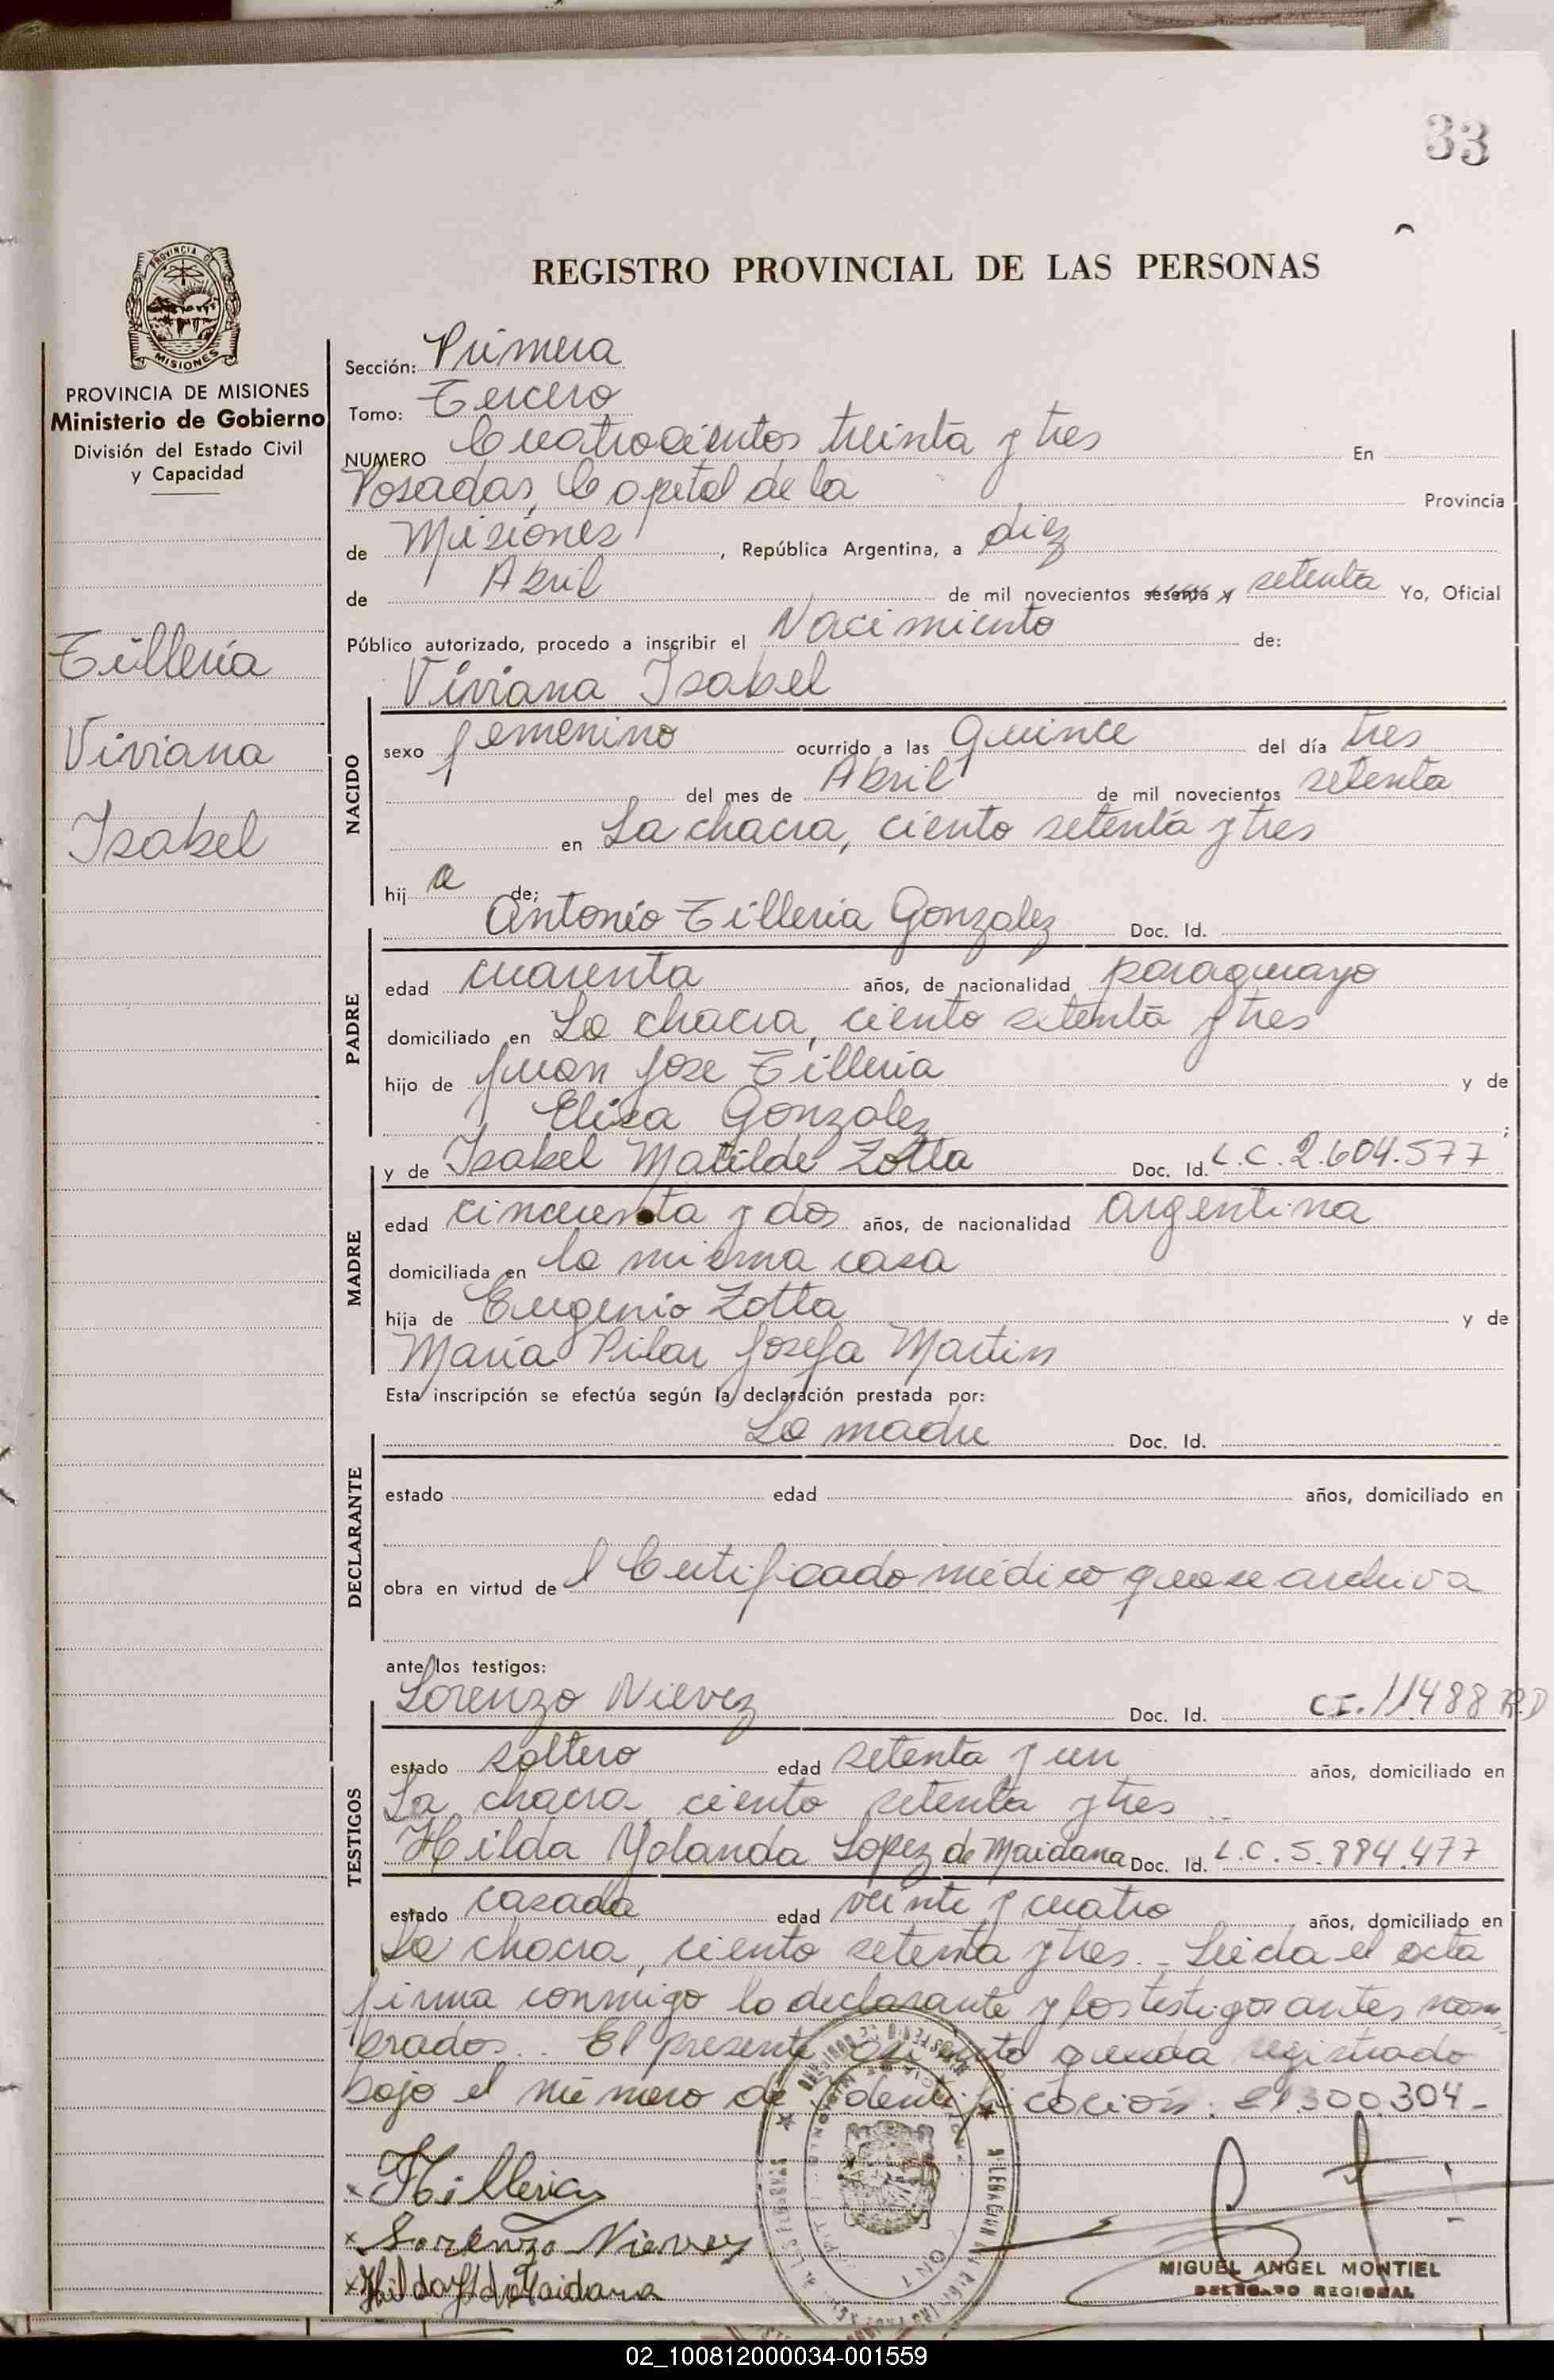 33
REGISTRO PROVINCIAL DE LAS PERSONAS
PROVINCIA DE MISIONES
Ministerio de Gobierno
División del Estado Civil
y Capacidad
Tilleria
Viviana
Isabel
Sección: Primera
Tomo: Tercero
NUMERO Cuatrocientos treinta y tres En
Posadas, Capital de la Provincia
de Misiones, República Argentina, a diez
de Abril de mil novecientos sesenta y setenta Yo, Oficial
Público autorizado, procedo a inscribir el Nacimiento de:
Viviana Isabel
NACIDO
sexo femenino ocurrido a las quince del día tres
del mes de Abril de mil novecientos setenta
en La chacra, ciento setenta y tres
hij a de:
Antonio Tilleria Gonzalez Doc. Id.
PADRE
edad cuarenta años, de nacionalidad paraguayo
domiciliado en La chacra, ciento setenta y tres
hijo de Juan Jose Tilleria y de
Elisa Gonzalez;
y de Isabel Matilde Zotta Doc. Id. L.C. 2.604.577
MADRE
edad cincuenta y dos años, de nacionalidad argentina
domiciliada en la misma casa
hija de Eugenio Zotta y de
María Pilar Josefa Martin
Esta inscripción se efectúa según la declaración prestada por:
La madre Doc. Id.
DECLARANTE
estado edad años, domiciliado en
obra en virtud de l Certificado médico que se archiva
ante los testigos:
Lorenzo Nievez Doc. Id. CI. 11488 R.D
TESTIGOS
estado soltero edad setenta y un años, domiciliado en
La chacra, ciento setenta y tres
Hilda Yolanda Lopez de Maidana Doc. Id. L.C. 5.884.477
estado casada edad veinte y cuatro años, domiciliado en
La chacra, ciento setenta y tres.- Leida el acta
firma conmigo la declarante y los testigos antes nom-
brados.. El presente asiento queda registrado
bajo el número de Identificación: 21.300.304-
x Tilleria
x Lorenzo Nievez
x Hilda de Maidana
MIGUEL ANGEL MONTIEL
DELEGADO REGIONAL
02_100812000034-001559